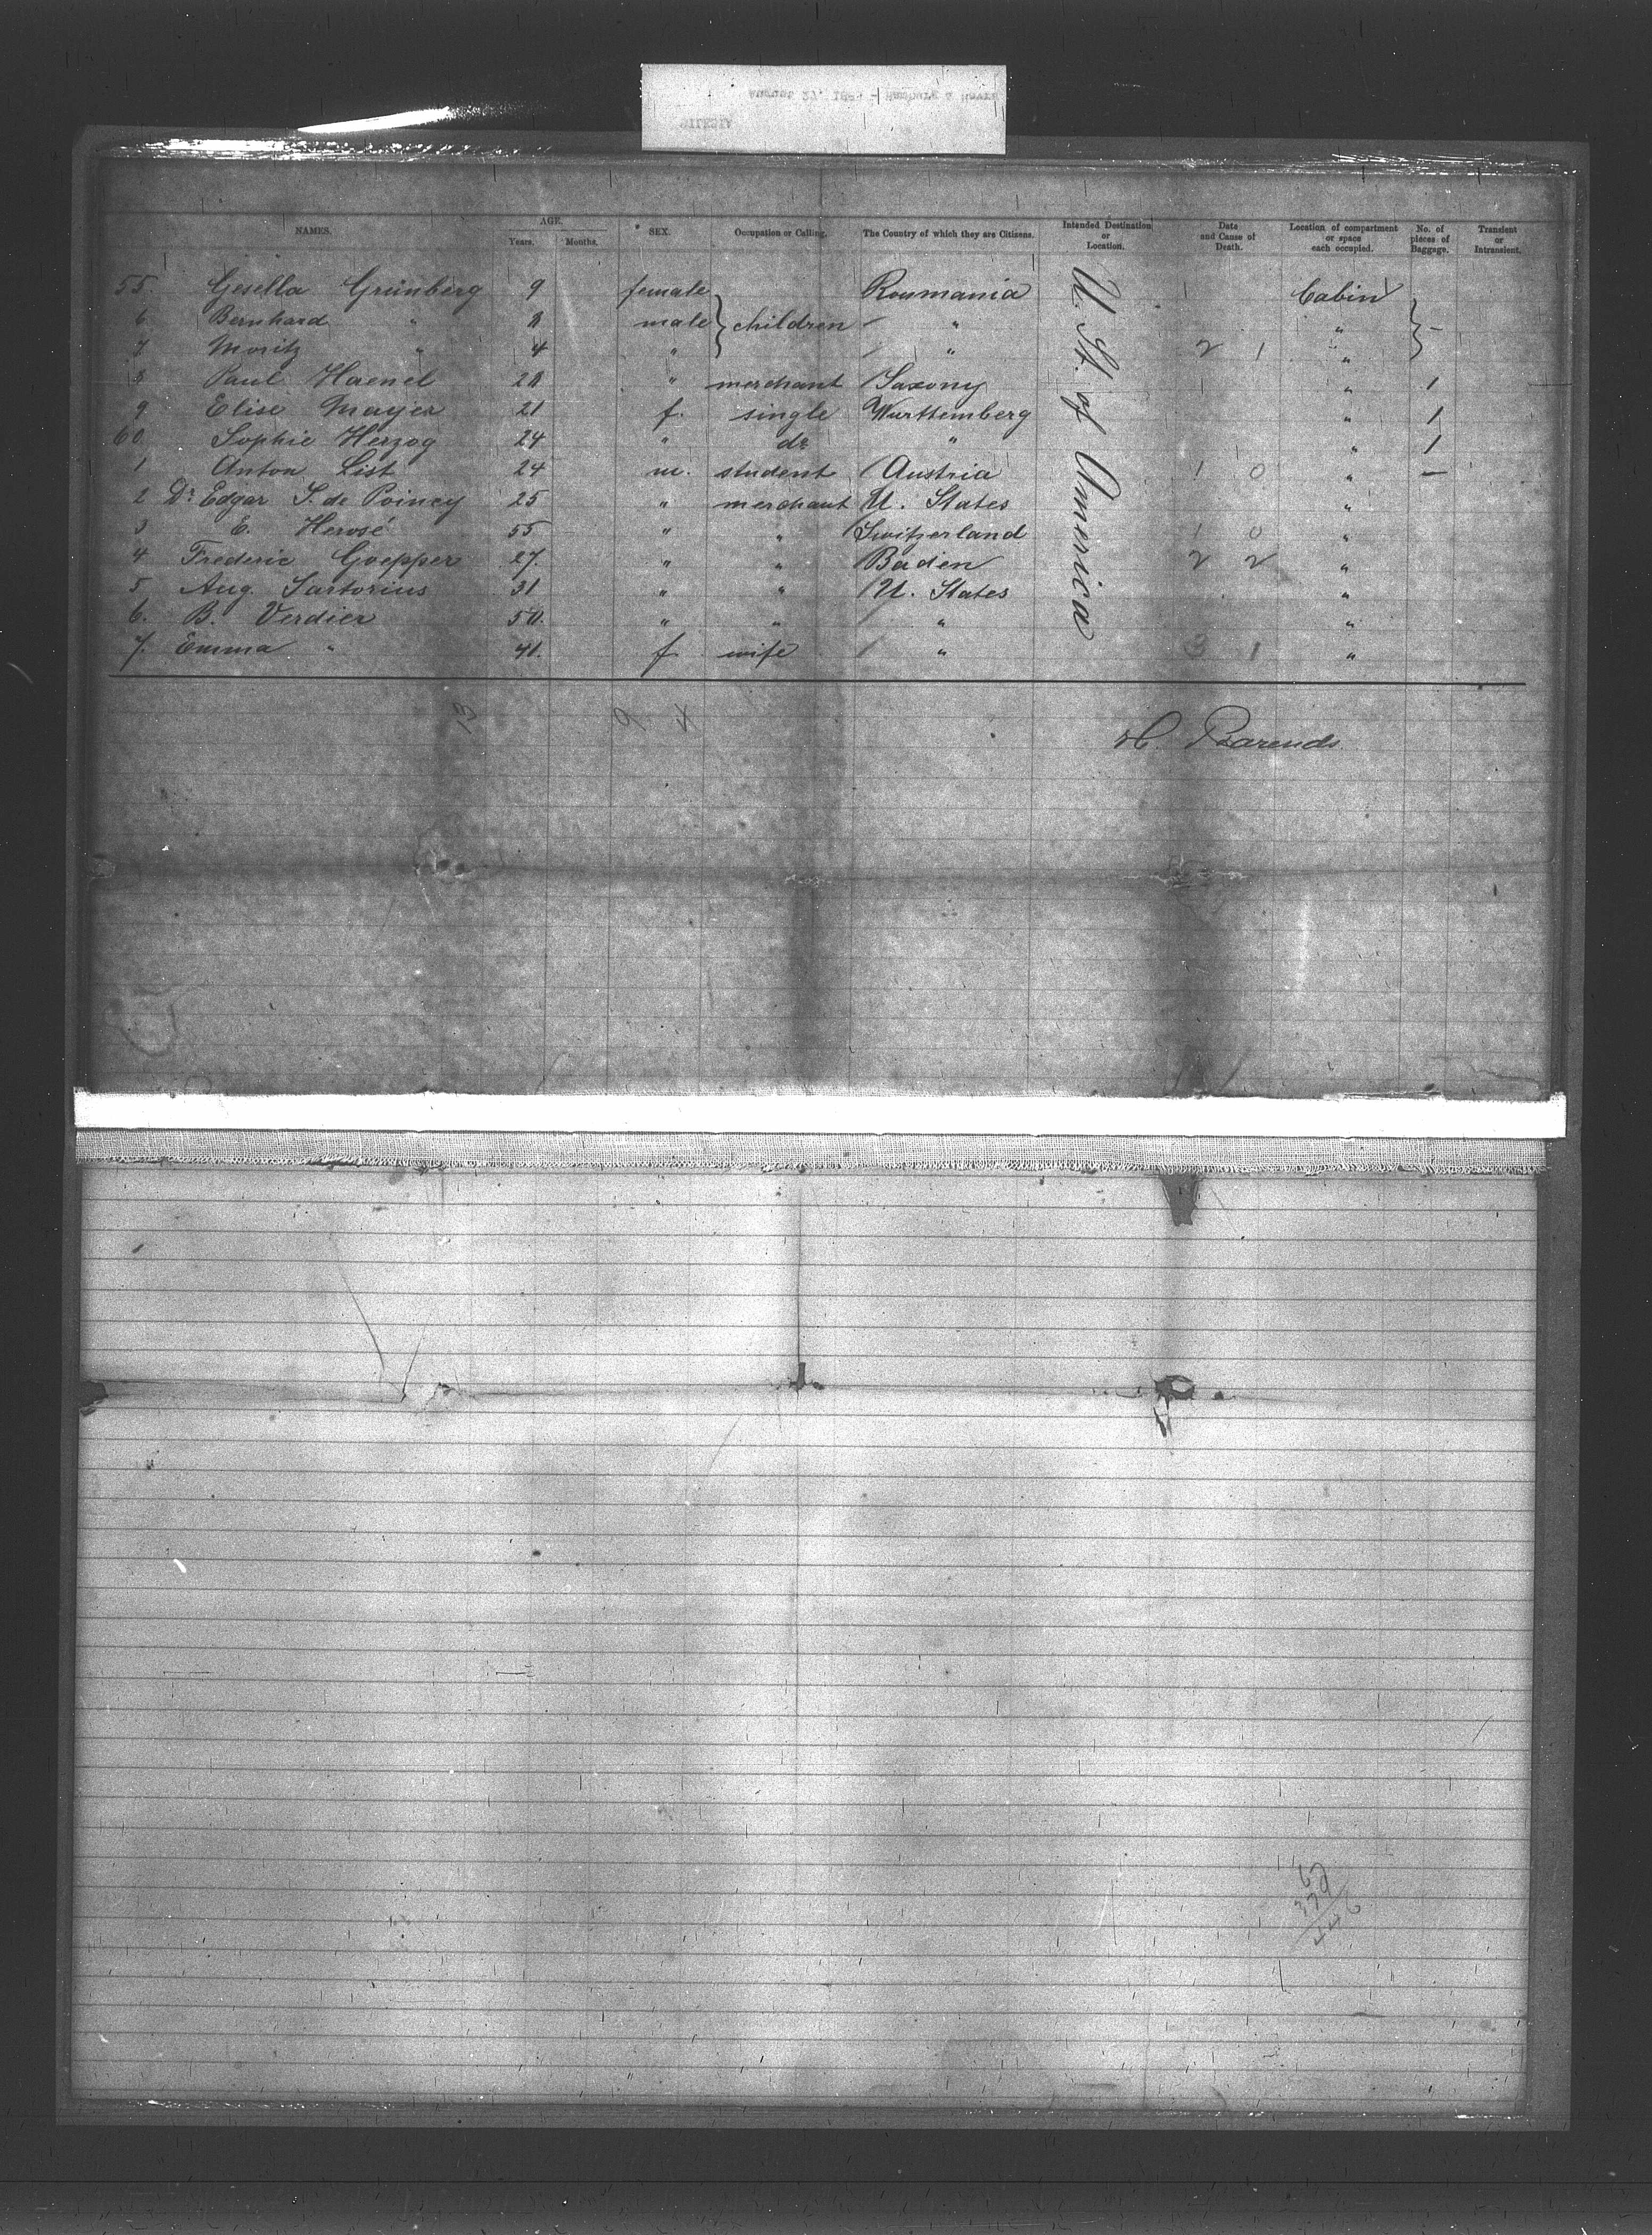 NAMES. AGE. SEX. Occupation or Calling. The Country of which they are Citizens. Intended Destination or Location. Date and Cause of Death. Location of compartment or space each occupied. No. of pieces of Baggage. Transient or Intransient.
Years. Months.
U. St. of America
55. Gesella Grünberg 9 female Roumania Cabin
6 Bernhard " 8 male } children " " } –
7 Moritz " 4 " " 2 1 "
8 Paul Haenel 28 " merchant Saxony " 1
9 Elise Mayer 21 f. single Wurttemberg " 1
60. Sophie Herzog 24 " do " " 1
1 Anton List 24 m. student Austria 1 0 " –
2 Dr Edgar S. de Poincy 25 " merchant U. States "
3 E. Herosé 55 " " Switzerland 1 0 "
4 Frederic Goepper 27. " " Baden 2 2 "
5 Aug. Sartorius 31 " " U. States "
6. B. Verdier 50. " " " "
7. Emma " 41. f wife " 3 1 "
13 9 4
H. Barends